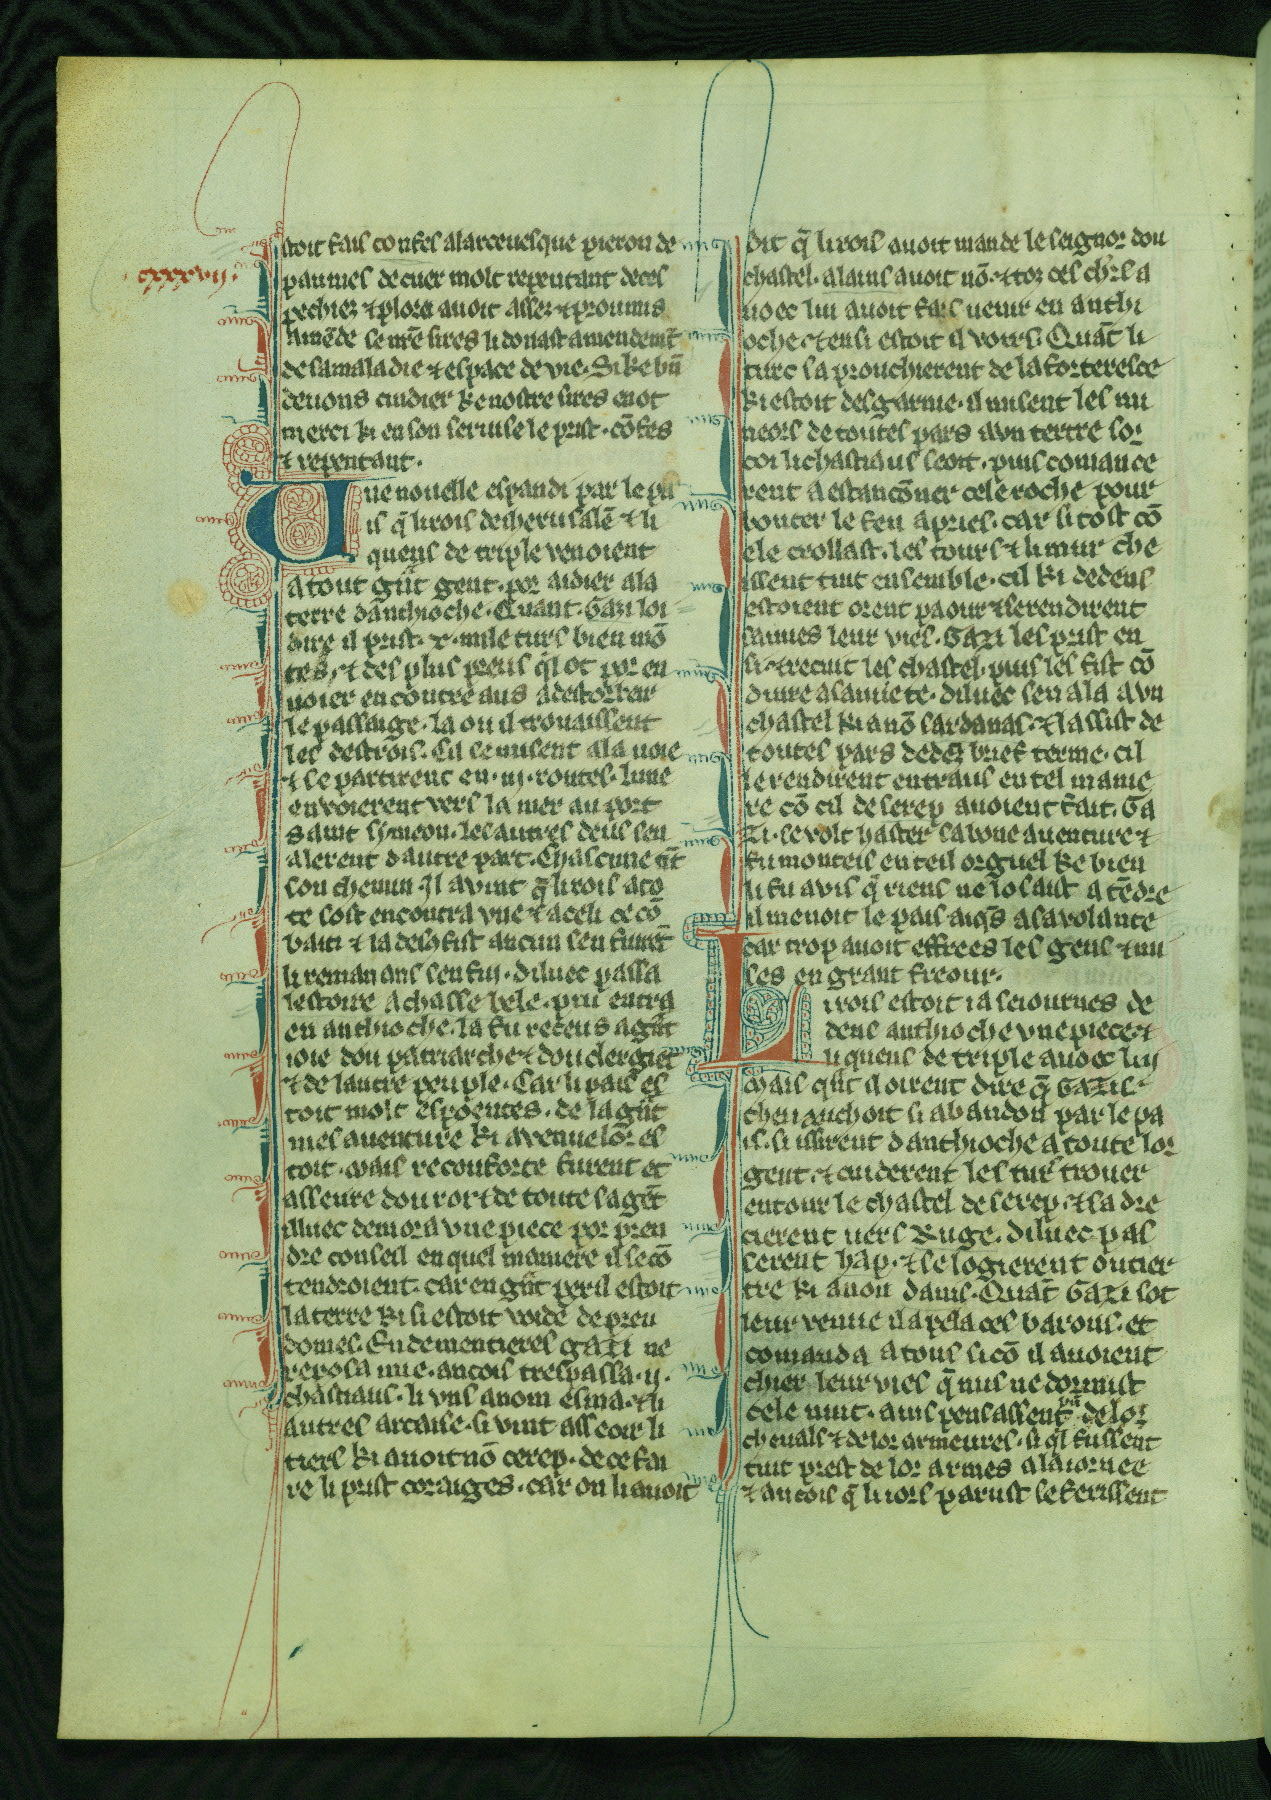 cxxxvij.
stoit fais confes alarceuesque pieron de
paumes de cuer molt repentant de ces
pechiez ⁊ plore auoit assez ⁊ proumis
amēde se nrē sires li donast amendemēt
de sa maladie ⁊ espace de vie. Si ke bn̄
deuons cuidier ke nostre sires en ot
merci ki en son seruise le prist. cōfes
⁊ repentant.
Une nouelle espandi par le pa
is q̄ li rois de iherusalē ⁊ li
quens de triple venoient
a tout gn̄t gent. por aidier a la
terre danthioche. Quant. Gazi loi
dire il prist. x. mile turs bien mō
tes, ⁊ des plus preus q̄l ot por en
uoier encontre aus a destorber
le passaige. la ou il trouaissent
les destrois. Cil se misent a la uoie
⁊ se partirent en. iij. routes. lune
enuoierent vers la mer au port
saint symeon. les autres deus sen
alerent dautre part. Chascune tīt
son chemin. Il auint q̄ li rois a co
te lost encontra vne ⁊ a celi ce cō
bati ⁊ la descōfist aucun sen fuirēt
li remanans sen fui. diluec passa
lestoire a chasse bele. puis entra
en anthioche. la fu receus a gn̄t
ioie dou patriarche ⁊ dou clergiet
⁊ de lautre peuple. Car li pais es
toit molt espoentes. de la gn̄t
mesauenture ki auenue lor es
toit. mais reconforte furent et
asseure dou roi ⁊ de toute sa gēt
illuec demora vne piece por pren
dre conseil en quel maniere il se cō
tendroient. car en gn̄t peril estoit
la terre ki si estoit voide de preu
domes. Endementieres gazi ne
reposa mie. ancois trespassa. ij.
chastiaus. li vns a nom esma. ⁊ li
autres arcaise. si vint asseoir li
tiers ki auoit nō cerep. de ce fai
re li prist coraiges. car on li auoit
dit q̄ li rois auoit mande le seignor dou
chastel. alains auoit nō. ⁊ toz ces ch̄rs a
uoec lui auoit fais uenir en anthi
oche. ⁊ ensi estoit il voirs. Quāt li
turc saprouchierent de la forteresce
ki estoit desgarnie. il misent les mi
neors de toutes pars a vn tertre sor
coi li chastiaus seoit. puis comance
rent a estanconer cele roche pour
bouter le feu apries. car si tost cō
ele crollast. les tours ⁊ li mur che
issent tuit ensemble. cil ki dedens
estoient orent paour ⁊ se rendirent
saines leur vies. Gazi les prist en
si. ⁊ recuit les chastel. puis les fist cō
duire a sauuete. diluec sen ala a vn
chastel ki a nō sardanas. ⁊ lassist de
toutes pars dedēz brief terme. cil
le rendirent entraus en tel manie
re cō cil de serep auoient fait. Ga
zi. se volt haster sa bone auenture ⁊
fu monteis en teil orguel ke bien
li fu auis q̄ riens ne losaist atēdre
il menoit le pais aiqs a sa volante
car trop auoit effrees les gens ⁊ mi
ses en grant freour.
Li rois estoit ia seiournes de
dens anthioche vne piece ⁊
li quens de triple auoec lui
mais qn̄t il oirent dire q̄ Gazis
cheuauchoit si abandon par le pa
is. si issirent danthioche a toute lor
gent. ⁊ cuiderent les turs trouer
entour le chastel de serep. ⁊ sadre
cierent uers Ruge. diluec pas
serent hap. ⁊ se logierent ou tier
tre ki a non danis. Quāt Gazi sot
leur venue il apela ces barons. et
comanda a tous si cō il auoient
chier leur vies q̄ nus ne dormist
cele nuit. ains pensassent bn̄ de lor
cheuals ⁊ de lor armeures. si q̄l fussent
tuit prest de lor armes a laiornee
⁊ ancois q̄ li iors parust se ferissent